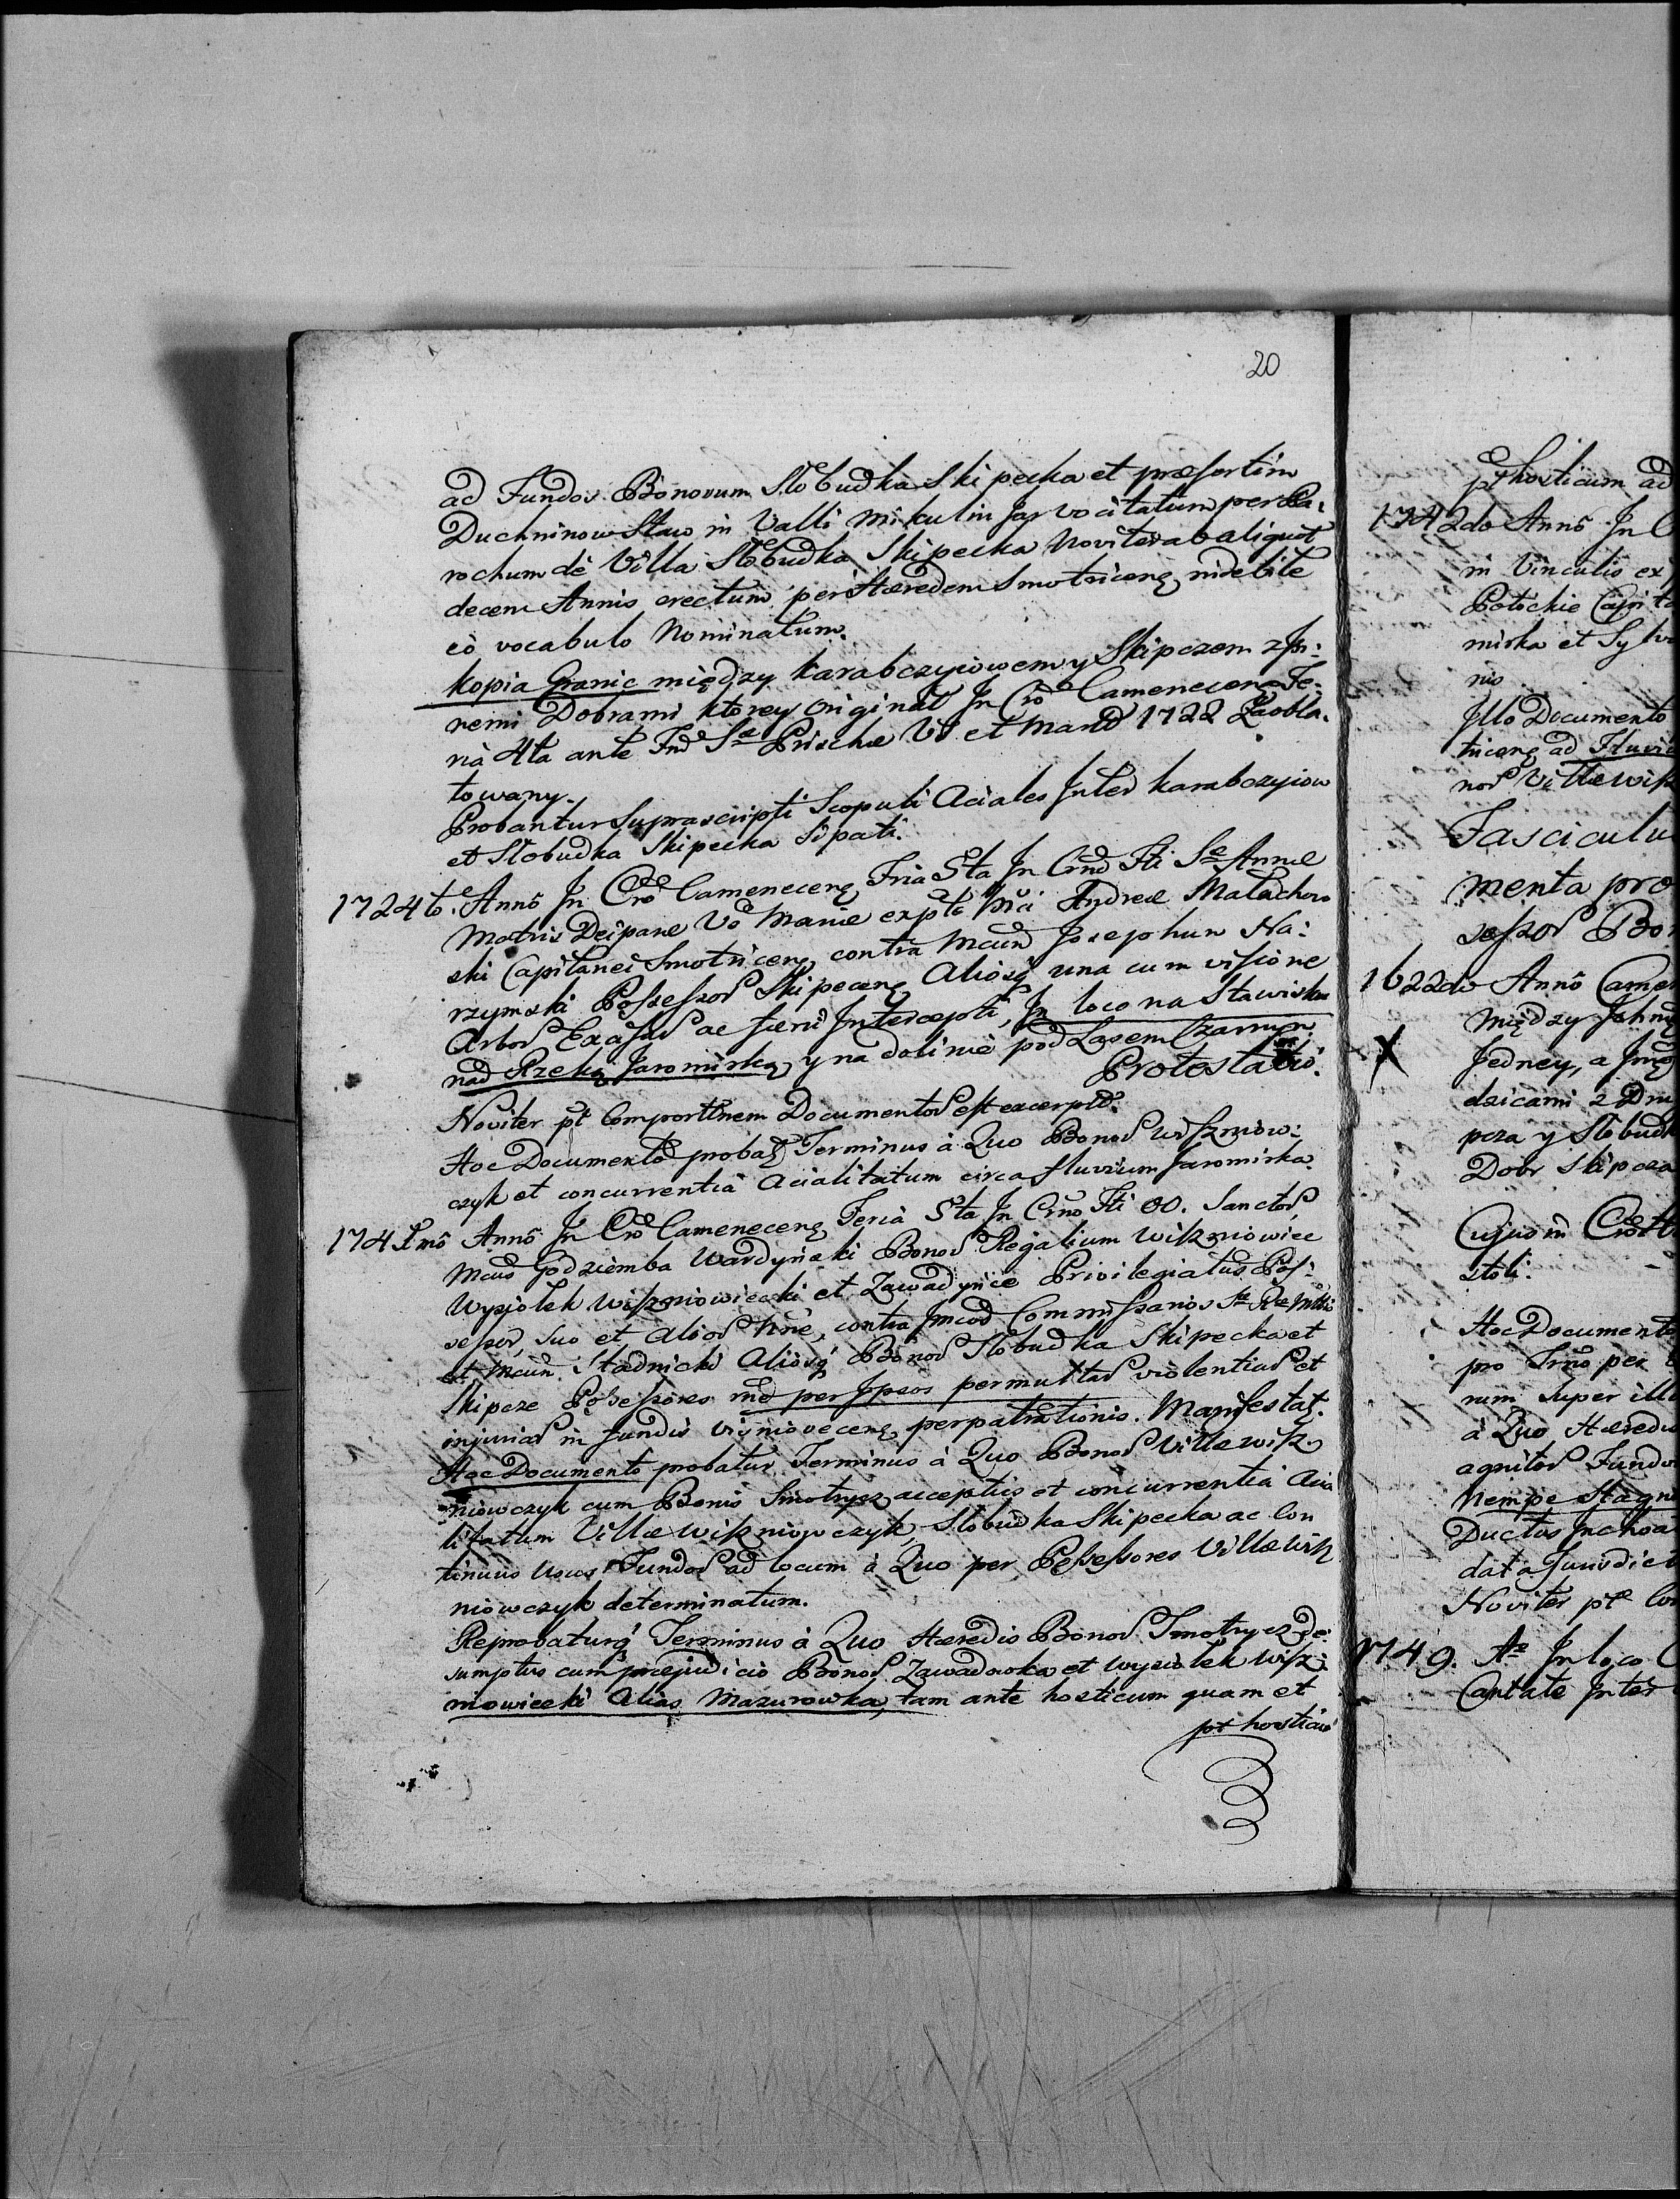 20
ad Fundos Bonorum Słobudka Skipecka et præsertim
Duchninow Staw in Valli Mikulin Jar vocitatum per Pa:
rochum de Villa Słobudka Skipecka Noviter ab aliquot
decem Annis erectum per Hæredem Smotricens indebite
eò vocabulo Nominatum.
kopia Granic między karabczyiowem y Skipczem z In:
nemi Dobrami ktorey Original Jn Cro Camenecens Fe:
rià 4ta ante Fnd Sæ Priscæ V et Mart 1722 Zaobla:
towany.
Probantur suprascripti Scopuli Aciales Jnter karabczyiow
et Słobudka Skipecka sipati.
1724to. Anno Jn Cro Camenecens Fria 5ta Jn Crno Fti Sæ Annæ
Matris Deiparæ V Mariæ exple Andreæ Małachow
ski Capitanei Smotricens contra Mcum Josephum Na:
rzymski Possessor Skipecens Aliosq una cum visione
Arbor Exassar ac fæni Jntercepti, Jn loco na Stawisku
nad Rzeką Jaromirką y na dolinie pod Lasem Czarnym
Protestatio.
Noviter pt Comporttnem Documentor est excerptt.
Hoc Documento probat Terminus à Quo Bonor Wiszniow:
czyk et concurrentià Acialitatum circa fluvium Jaromirka.
1741mo Anno Jn Cro Camenecens Feria 5ta Jn Crno Fti OO. Sanctor
Mcus Godziemba Wardynski Bonor Regalium Wiszniowiec
Wysiołek Wiszniowiecki et Zawadynce Privilegiatus Pos:
sessor, suo et alior nne, contra Commissarios
et Mcum Stadnicki Aliosq Bonor Słobudka Skipecka et
Skipcze Possessores per Jpsos permultas violentias et
injurias in fundis visniovecens perpatrationis. Manifestat.
Hoc Documento probatur Terminus à Quo Bonor Villæ Wisz
niowczyk cum Bonis Smotrycz acceptus et concurrentià Acia
litatum Villæ Wiszniowczyk, Słobudka Skipecka ac Con
tinuus usus Fundor ad locum à Quo per Possessores Villæ Wisz
niowczyk determinatum.
Reprobaturq Terminus à Quo Hæredis Bonor Smotrycz de:
sumptus cum præjudicio Bonor Zawadowka et Wysiołek Wisz:
niowiecki Alias Mazurowka, tam ante hosticum quam et
pt hosticu
pthosticum ad
1742do Anno Jn C
in Vinculis ex
Potockie Capita
mirka et Sylv
nis
Jllo Documento
tricens ad Fluvi
nor Villæ Wisz
Fasciculu
menta pro
sessor Bo
1622do Anno Came
X
Między
Jedney, a Jmę
dzicami z Dru
pcza y Słobudk
Dobr Skipcza
Cujus in
stoli.
Hoc Document
pro Trno per
rum super ill
à Quo Hæredu
agnitor Fundo
Nempe Stagn
Ductus Jnchoa
data Jurisdict
Noviter pt Co
1749. Ao Jn loco C
Cantate Jnter